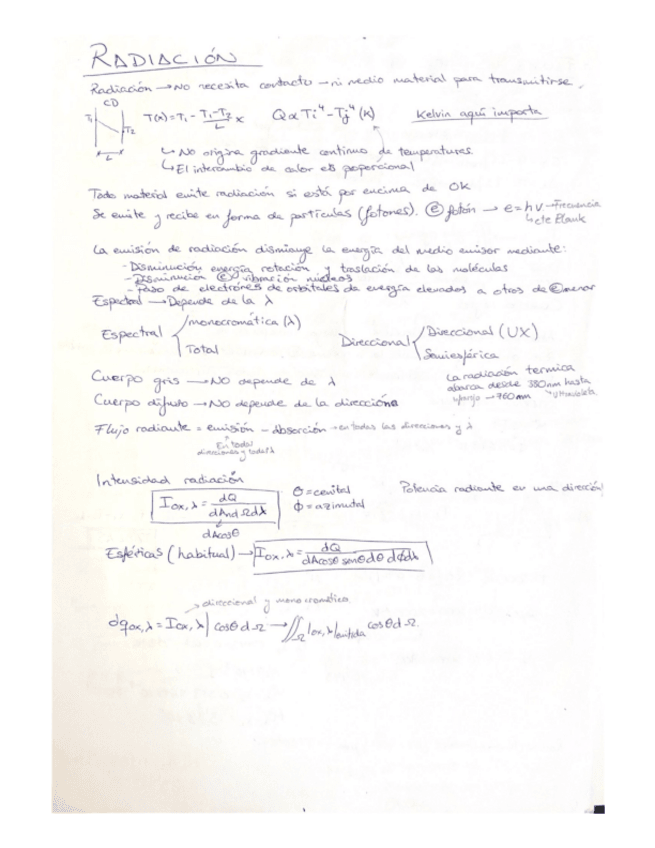 RADIACIÓN
Radiación → No necesita contacto → ni medio material para transmitirse.
CD
T₁ T₂ L T(x) = T₁ - (T₁-T₂)/L x Q α Ti⁴ - Tj⁴ (K) Kelvin aquí importa
↳ No origina gradiente continuo de temperaturas.
↳ El intercambio de calor es proporcional
Todo material emite radiación si está por encima de 0K
Se emite y recibe en forma de partículas (fotones). ⓔ fotón → e = hν → Frecuencia
↳ cte Plank
La emisión de radiación disminuye la energía del medio emisor mediante:
- Disminución energía rotación y traslación de las moléculas
- Disminución ⓔ vibración núcleos
- Paso de electrones de orbitales de energía elevados a otros de ⓔ menor
Espectral → Depende de la λ
Espectral monocromática (λ)
Total
Direccional Direccional (UX)
Semiesférica
Cuerpo gris → NO depende de λ
La radiación termica
abarca desde 380nm hasta
760 mm
Ultravioleta
Cuerpo difuso → NO depende de la dirección
Flujo radiante = emisión - absorción → en todas las direcciones y λ
En todas
direcciones y toda λ
Intensidad radiación
I ox,λ = dQ / dAn dΩ dλ
dAcosθ
θ = cenital
Φ = azimutal
Potencia radiante en una dirección
Esféricas (habitual) → I ox,λ = dQ / dAcosθ senθ dθ dΦ dλ
→ direccional y monocromática
dq ox,λ = I ox,λ | cosθ dΩ → ∬Ω I ox,λ | emitida cosθ dΩ.